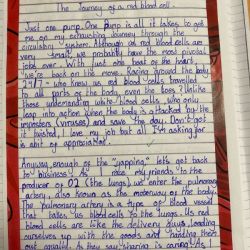 The Journey of a red blood cell.
Just one pump. One pump is all it takes to get
me on my exhausting journey through the
circulatory system. Although us red blood cells are
very small we probably have the most pivotal
jobs ever. With just one beat of the heart
we're back on the move. Racing around the body
24/7 - who knew us red blood cells travelled
to all parts of the body, even the toes? Unlike
those underwhelming white blood cells, who only
leap into action when the body is attacked by the
imposters (viruses) and save the day. Don't get
it twisted, I love my job but all I'm asking for
is abit of appreciation.
Anyway, enough of the "yapping" let's get back
to business! As me my friends to the
producer of O2 (the lungs) we enter the pulmonary
artery, also known as the motorway of the body.
The pulmonary artery is a type of blood vessel
that takes us blood cells to the lungs. Us red
blood cells are like the delivery guys loading
ourselves up with the goods and handing them
out equally. As they say "sharing is caring". As I